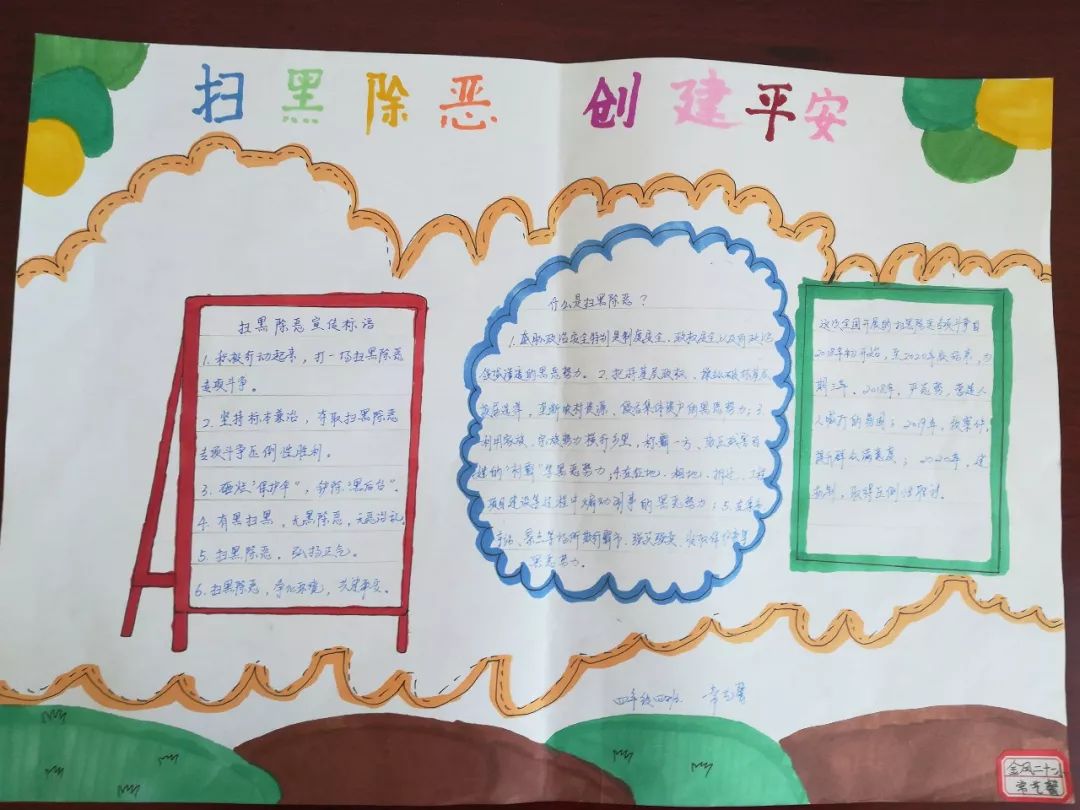 扫黑除恶 创建平安
扫黑除恶宣传标语
1. 积极行动起来,打一场扫黑除恶
专项斗争。
2. 坚持标本兼治,夺取扫黑除恶
专项斗争压倒性胜利。
3. 砸烂"保护伞",铲除"黑后台"。
4. 有黑扫黑,无黑除恶,无恶治乱
5. 扫黑除恶,弘扬正气。
6. 扫黑除恶,净化环境,共建平安。
什么是扫黑除恶?
1. 威胁政治安全特别是制度安全、政权安全以及向政治
领域渗透的黑恶势力。2. 把持基层政权、操纵破坏基层
换届选举,垄断农村资源、侵吞集体资产的黑恶势力;3.
利用家族、宗族势力横行乡里,称霸一方、欺压残害百
姓的"村霸"等黑恶势力;4. 在征地、租地、拆迁、工程
项目建设等过程中煽动闹事的黑恶势力;5. 在
市场、景点等场所欺行霸市、强买强卖、收取保护费等
黑恶势力。
这次全国开展的扫黑除恶专项斗争自
2018年初开始,至2020年底结束,为
期三年。2018年,
人喊打的氛围;2019年,
提升群众满意度;2020年,建
机制,取得压倒性胜利。
四年级四班
金凤二十一小